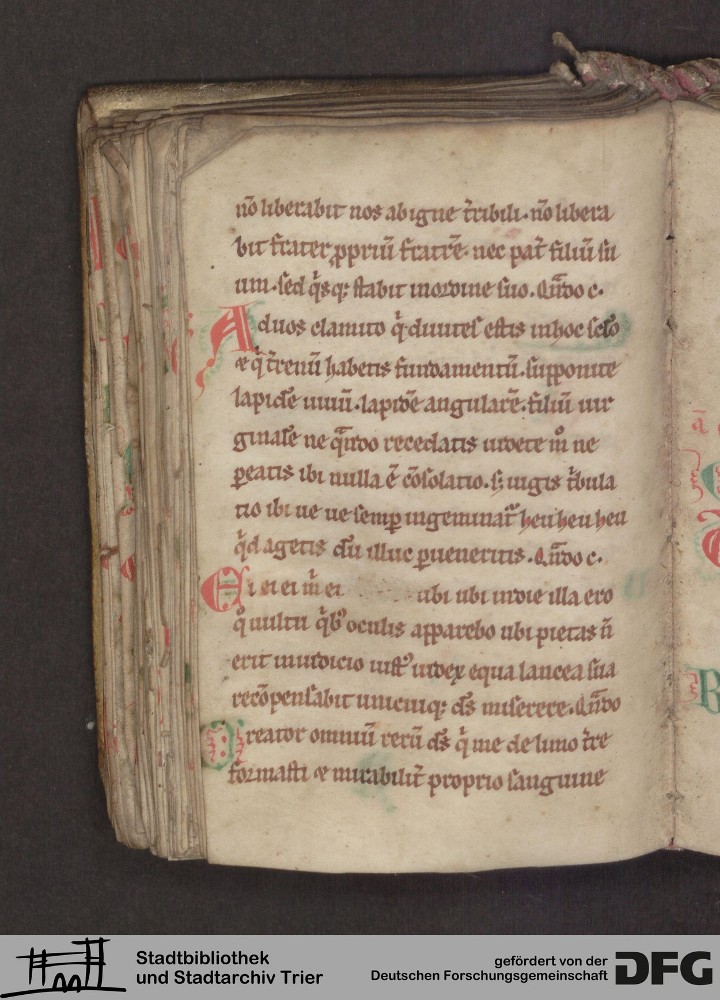 nō liberabit nos ab igne t̄ribili. nō libera
bit frater ꝓpriū fratrē. nec pat̄ filiū su
um. sed q̄sq; stabit in ordine suo. Qn̄do c.
Ad uos clamito q̄ diuites estis in hoc sc̄lo
et q̄ t̄renū habetis fundamentū. supponite
lapidē uiuū. lapidē angularē. filiū uir
ginalē ne quando recedatis uidete m̊ ne
ꝑeatis ibi nulla ē cōsolatio. s; iugis t̄bula
tio ibi ue ue semꝑ ingeminat̄ heu heu heu
q̄d agetis dū illuc ꝑueneritis. Qn̄do c.
Ei ei ei m̄ ei ubi ubi in die illa ero
q̊ uultu q̄b; oculis apparebo ubi pietas n̄
erit in iudicio iust; iudex equa lancea sua
recōpensabit unicuiq; ds̄ miserere. Qn̄do
Creator omniū rerū ds̄ q̄ me de limo t̄re
formasti et mirabilit̄ proprio sanguine
Stadtbibliothek
und Stadtarchiv Trier
gefördert von der
Deutschen Forschungsgemeinschaft
DFG